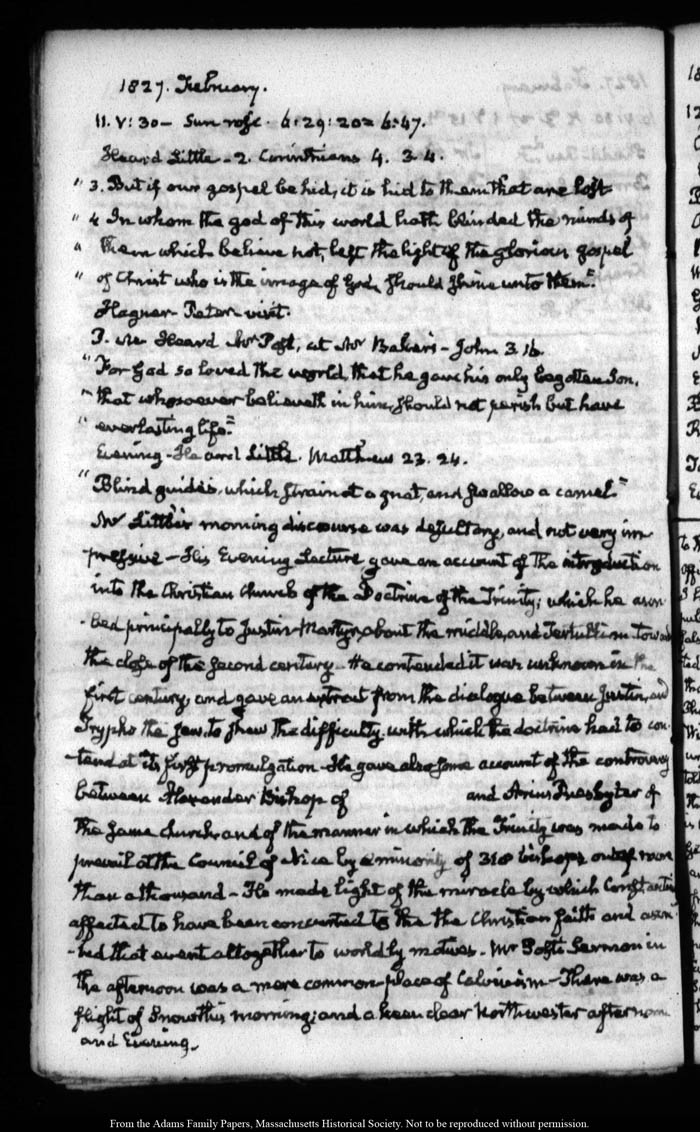 1827. February.
11. V: 30 - Sun rose. 6:29:20= 6:47.
Heard Little - 2. Corinthians 4. 3.4.
" 3. But if our gospel be hid, it is hid to them that are lost
" 4 In whom the god of this world hath blinded the minds of
" them which believe not, lest the light of the glorious gospel
" of Christ who is the image of God, should shine unto them."
Hagner - Peter visit.
P. M. Heard Mr Post, at Mr Baker's - John 3.16.
"For God so loved the world, that he gave his only begotten Son,
" that whosoever believeth in him, should not perish but have
" everlasting life."
Evening - Heard Little. Matthew 23. 24.
" Blind guides, which strain at a gnat, and swallow a camel."
Mr Little's morning discourse was desultory, and not very im
pressive - His Evening Lecture gave an account of the introduction
into the Christian Church of the Doctrine of the Trinity; which he ascri
-bed principally to Justin Martyr, about the middle, and Tertullian toward
the close of the second century - He contended it was unknown in the
first century, and gave an extract from the dialogue between Justin, and
Trypho the Jew, to shew the difficulty with which the doctrine had to con
-tend at its first promulgation - He gave also some account of the controversy
between Alexander Bishop of and Arius Presbyter of
the same church, and of the manner in which the Trinity was made to
prevail at the Council of Nice by a minority of 318 bishops out of more
than a thousand - He made light of the miracle by which Constantine
affected to have been converted to the the Christian faith and ascri
-bed that event altogether to worldly motives - Mr Post's Sermon in
the afternoon was a mere common-place of Calvinism - There was a
flight of Snow this morning; and a keen clear Northwester afternoon
and Evening.
From the Adams Family Papers, Massachusetts Historical Society. Not to be reproduced without permission.